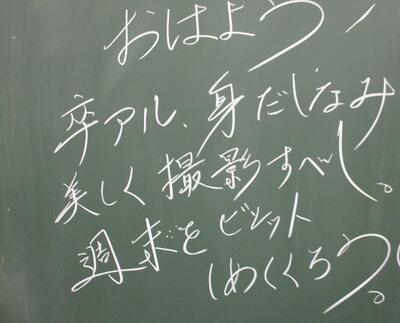 おはよう!
卒アル、身だしなみ
美しく撮影すべし。
週末をビシット
しめくくろう。